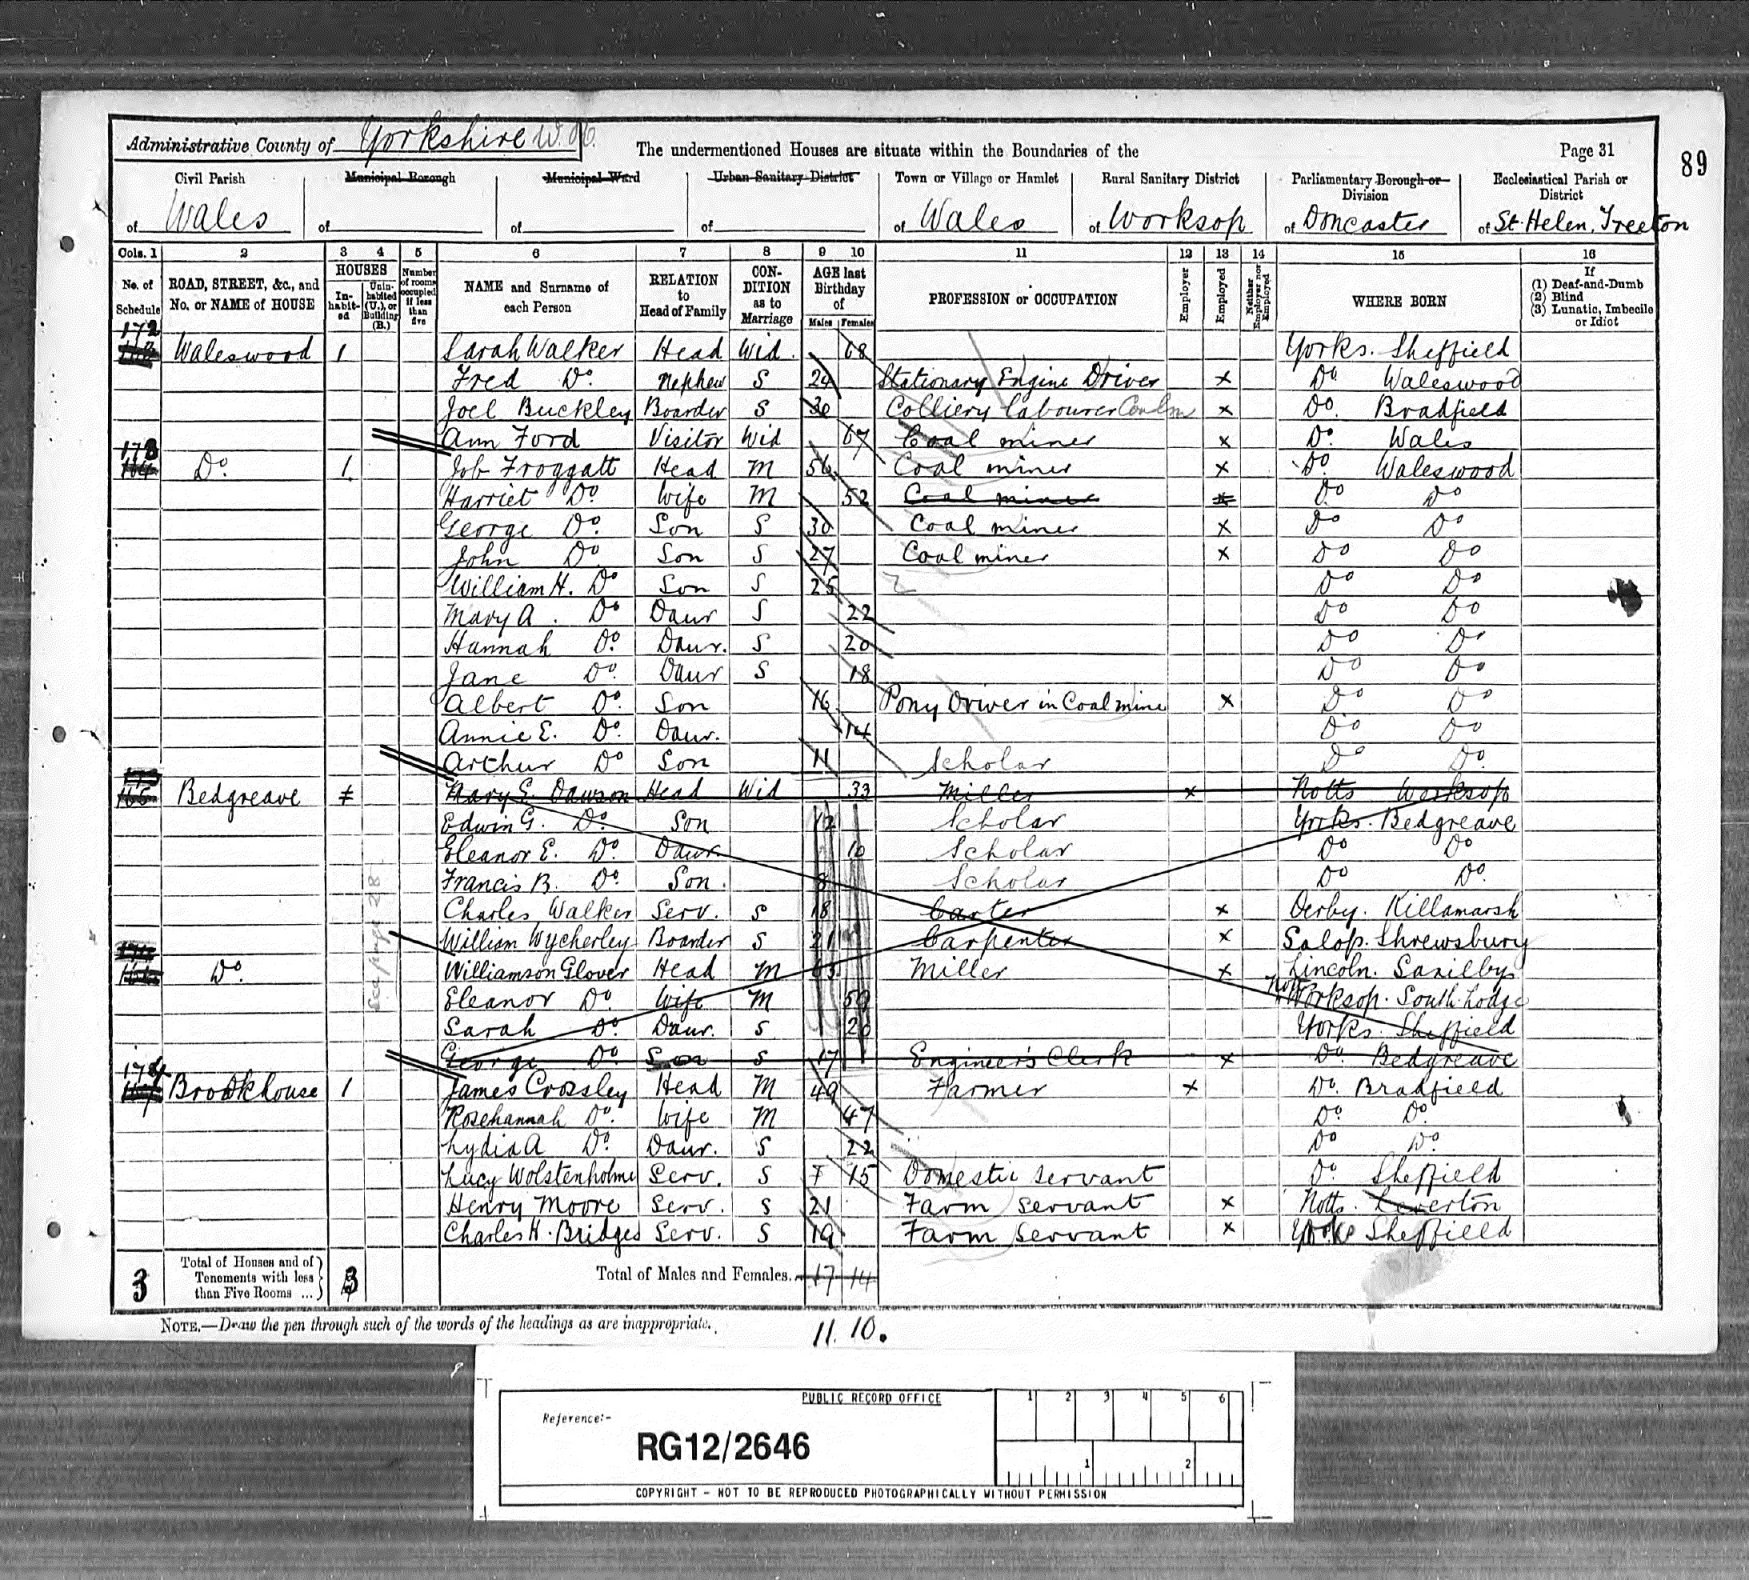 Administrative County of Yorkshire W.R.
The undermentioned Houses are situate within the Boundaries of the
Page 31
89
Civil Parish of Wales
Municipal Borough of
Municipal Ward of
Urban Sanitary District of
Town or Village or Hamlet of Wales
Rural Sanitary District of Worksop
Parliamentary Borough or Division of Doncaster
Ecclesiastical Parish or District of St. Helen, Treeton
Cols. 1 2 3 4 5 6 7 8 9 10 11 12 13 14 15 16
No. of Schedule
ROAD, STREET, &c., and No. or NAME of HOUSE
HOUSES
In-habit-ed
Unin-habited (U.), or Building (B.)
Number of rooms occupied if less than five
NAME and Surname of each Person
RELATION to Head of Family
CON-DITION as to Marriage
AGE last Birthday of
Males Females
PROFESSION or OCCUPATION
Employer
Employed
Neither Employer nor Employed
WHERE BORN
If (1) Deaf-and-Dumb (2) Blind (3) Lunatic, Imbecile or Idiot
172 Waleswood 1 Sarah Walker Head Wid. 68 Yorks. Sheffield
Fred Do. Nephew S 24 Stationary Engine Driver x Do Waleswood
Joel Buckley Boarder S 30 Colliery labourer x Do. Bradfield
Ann Ford Visitor Wid 67 Coal miner x Do. Wales
173 Do. 1. Job Froggatt Head M 56 Coal miner x Do. Waleswood
Harriet Do Wife M 52 Coal miner x Do Do
George Do. Son S 30 Coal miner x Do Do
John Do Son S 27 Coal miner x Do Do
William H. Do Son S 25 Do Do
Mary A. Do Daur S 22 Do Do
Hannah Do. Daur. S 20 Do Do
Jane Do Daur S 18 Do Do
Albert Do. Son 16 Pony Driver in Coal mine x Do Do
Annie E. Do. Daur. 14 Do Do
Arthur Do Son 11 Scholar Do Do.
Bedgreave Mary E. Dawson Head Wid 33 Miller x Notts Worksop
Edwin G. Do. Son 12 Scholar Yorks. Bedgreave
Eleanor E. Do. Daur 10 Scholar Do Do
Francis B. Do. Son. 8 Scholar Do Do.
Charles Walker Serv. S 18 Carter x Derby. Killamarsh
William Wycherley Boarder S 21 Carpenter x Salop. Shrewsbury
Do. Williamson Glover Head M 63 Miller x Lincoln. Saxilby
Eleanor Do. Wife M 59 Notts Worksop. South Lodge
Sarah Do. Daur. S 20 Yorks. Sheffield
George Do. Son S 17 Engineer's Clerk x Do. Bedgreave
See page 28
174 Brookhouse 1 James Crossley Head M 49 Farmer x Do. Bradfield
Rosehannah Do. Wife M 47 Do Do.
Lydia A Do. Daur. S 22 Do Do.
Lucy Wolstenholme Serv. S 15 Domestic Servant Do. Sheffield
Henry Moore Serv. S 21 Farm Servant x Notts. Leverton
Charles H. Bridges Serv. S 19 Farm Servant x Yorks Sheffield
3 Total of Houses and of Tenements with less than Five Rooms ... 3
Total of Males and Females... 17 14
NOTE.—Draw the pen through such of the words of the headings as are inappropriate.
11. 10.
PUBLIC RECORD OFFICE
1 2 3 4 5 6
Reference:-
RG12/2646
1 2
COPYRIGHT - NOT TO BE REPRODUCED PHOTOGRAPHICALLY WITHOUT PERMISSION